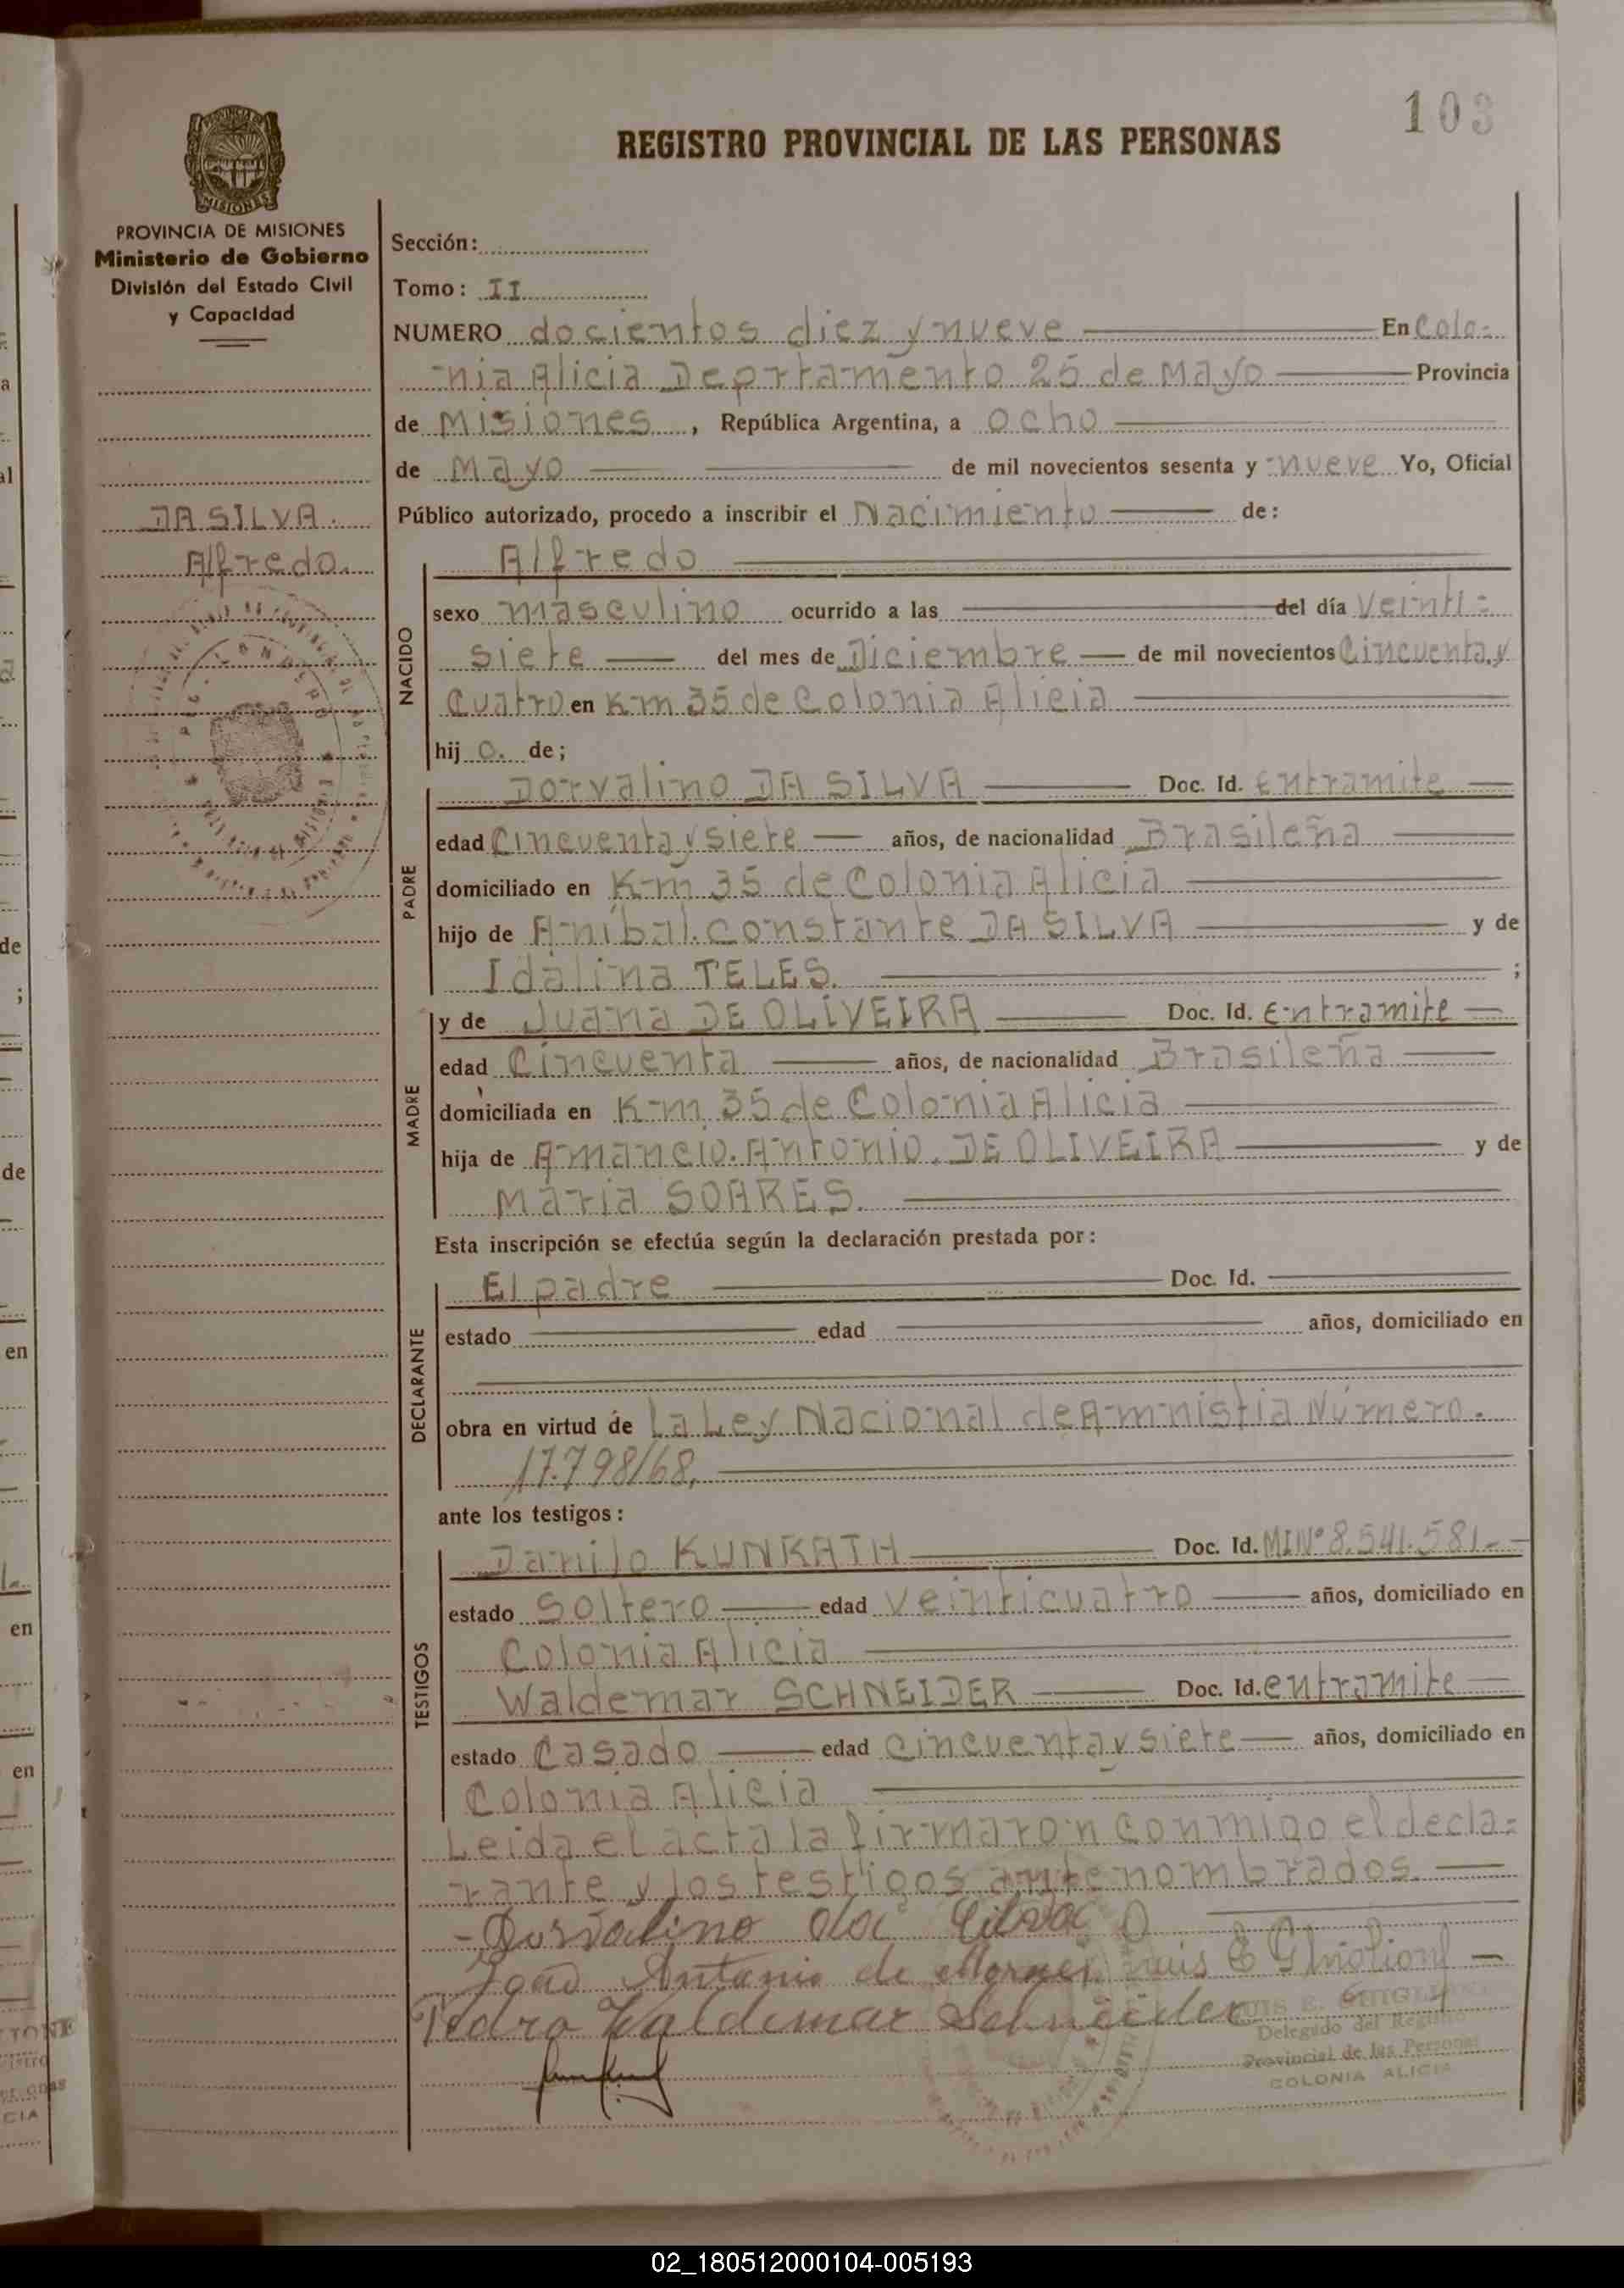 103
REGISTRO PROVINCIAL DE LAS PERSONAS
PROVINCIA DE MISIONES
Ministerio de Gobierno
División del Estado Civil
y Capacidad
DA SILVA.
Alfredo.
Sección:
Tomo: II
NUMERO docientos diez y nueve En Colo=
nia Alicia Deprtamento 25 de Mayo Provincia
de Misiones, República Argentina, a ocho
de Mayo de mil novecientos sesenta y nueve Yo, Oficial
Público autorizado, procedo a inscribir el Nacimiento de:
NACIDO
Alfredo
sexo masculino ocurrido a las del día Veinti=
siete del mes de Diciembre de mil novecientos Cincuenta y
Cuatro en Km 35 de Colonia Alicia
hijo. de;
PADRE
Dorvalino DA SILVA Doc. Id. Entramite
edad Cincuenta y siete años, de nacionalidad Brasileña
domiciliado en Km 35 de Colonia Alicia
hijo de Anibal. Constante DA SILVA y de
Idalina TELES. ;
MADRE
y de Juana DE OLIVEIRA Doc. Id. Entramite
edad Cincuenta años, de nacionalidad Brasileña
domiciliada en Km 35 de Colonia Alicia
hija de Amancio. Antonio. DE OLIVEIRA y de
Maria SOARES.
Esta inscripción se efectúa según la declaración prestada por:
DECLARANTE
El padre Doc. Id.
estado edad años, domiciliado en
obra en virtud de La Ley Nacional de Amnistia Número.
17.798/68,
ante los testigos:
TESTIGOS
Danilo KUNKATH Doc. Id. MIN° 8.541.581.-
estado Soltero edad veinticuatro años, domiciliado en
Colonia Alicia
Waldemar SCHNEIDER Doc. Id. entramite
estado Casado edad Cincuenta y siete años, domiciliado en
Colonia Alicia
Leida el acta la firmaron conmigo el decla=
rante y los testigos antenombrados.
-Dorvalino da Silva
João Antonio de Luis E Ghiglione
Pedro Valdemar Schneider
LUIS E. GHIGLIONE
Delegado del Registro
Provincial de las Personas
COLONIA ALICIA
02_180512000104-005193